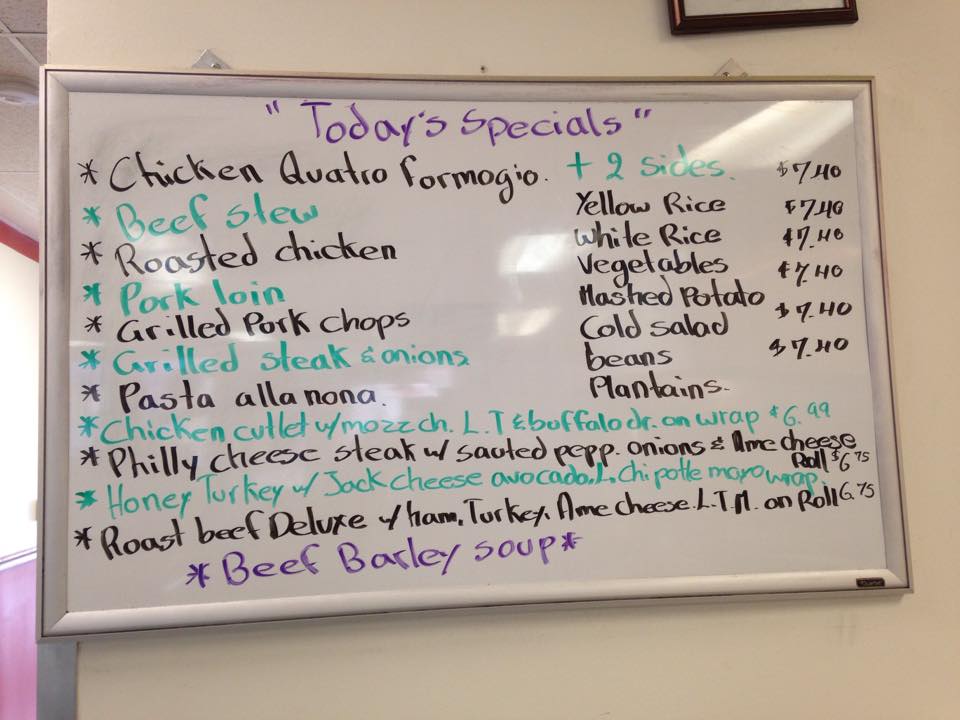 "Today's Specials"
* Chicken Quatro formogio. + 2 sides. $7.40
* Beef stew Yellow Rice $7.40
* Roasted chicken White Rice $7.40
* Pork loin Vegetables $7.40
* Grilled Pork chops Mashed Potato $7.40
* Grilled steak & onions Cold salad $7.40
* Pasta alla nona. beans
Plantains.
* Chicken cutlet w/mozz ch. L.T & buffalo dr. on wrap $6.99
* Philly cheese steak w/ sauted pepp. onions & Ame cheese
Roll $6.75
* Honey Turkey w/ Jack cheese avocado, L, Chipotle mayo wrap.
* Roast beef Deluxe w/ ham, Turkey, Ame cheese. L.T.M. on Roll 6.75
* Beef Barley soup *